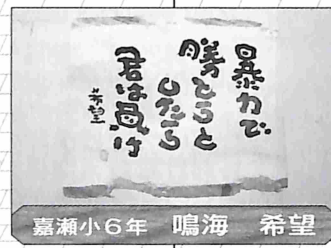 暴力で
勝とうと
したら
君は負け
希望
嘉瀬小6年 鳴海 希望